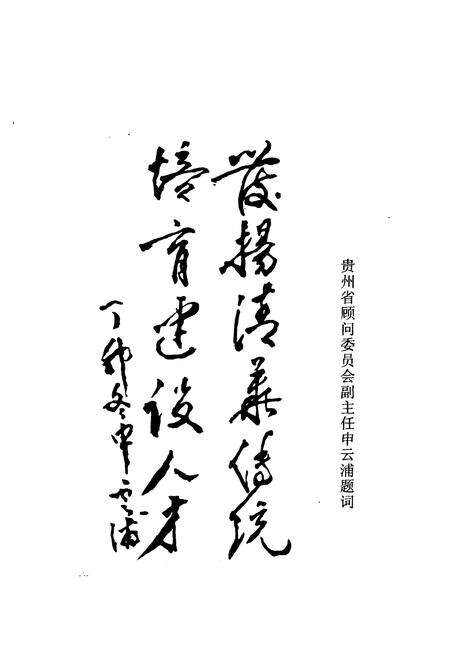 贵州省顾问委员会副主任申云浦题词
發揚清華傳统
培育建设人才
丁卯冬申雲浦